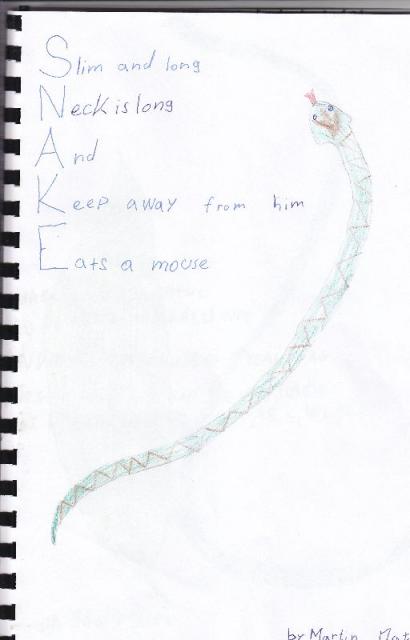 Slim and long
Neck is long
And
Keep away from him
Eats a mouse
by Martin